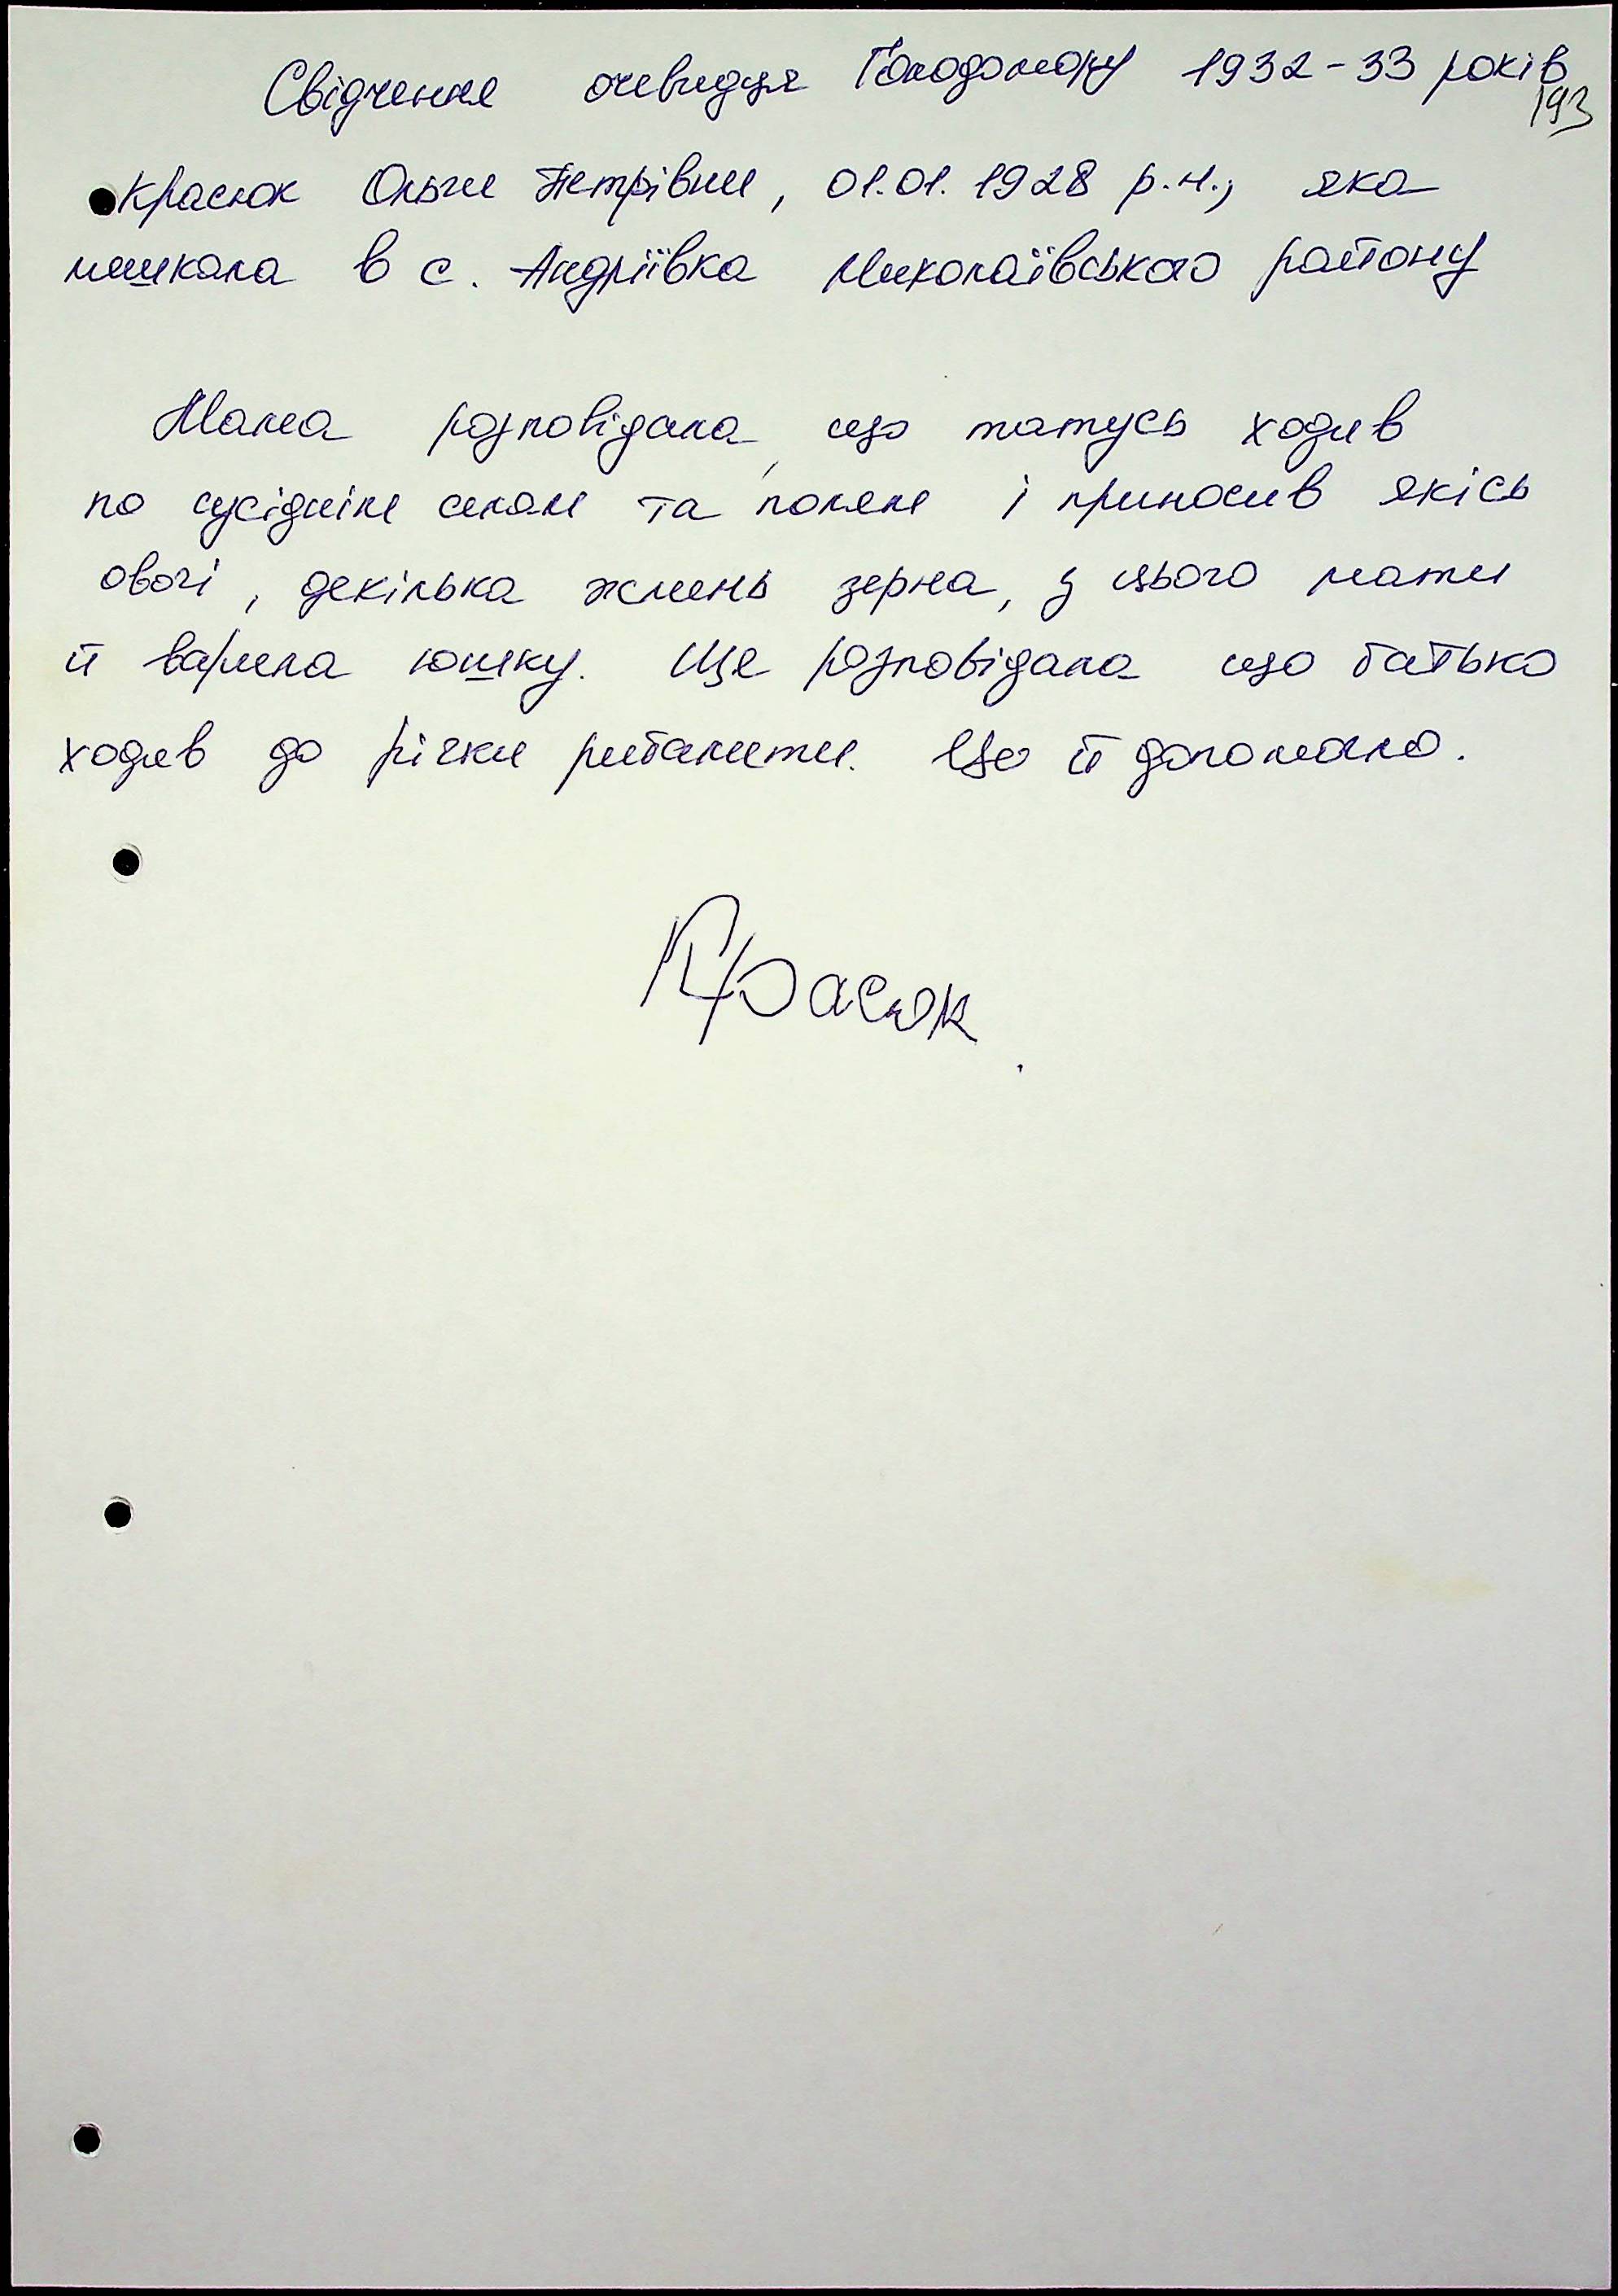 Свідчення очевидця Голодомору 1932-33 років
193
Красюк Ольги Петрівни, 01.01.1928 р.н., яка
мешкала в с. Андріївка Миколаївського району
Мама розповідала, що татусь ходив
по сусіднім селам та полям і приносив якісь
овочі, декілька жмень зерна, з цього мати
й варила юшку. Ще розповідала що батько
ходив до річки рибалити. Це й допомогло.
Красюк